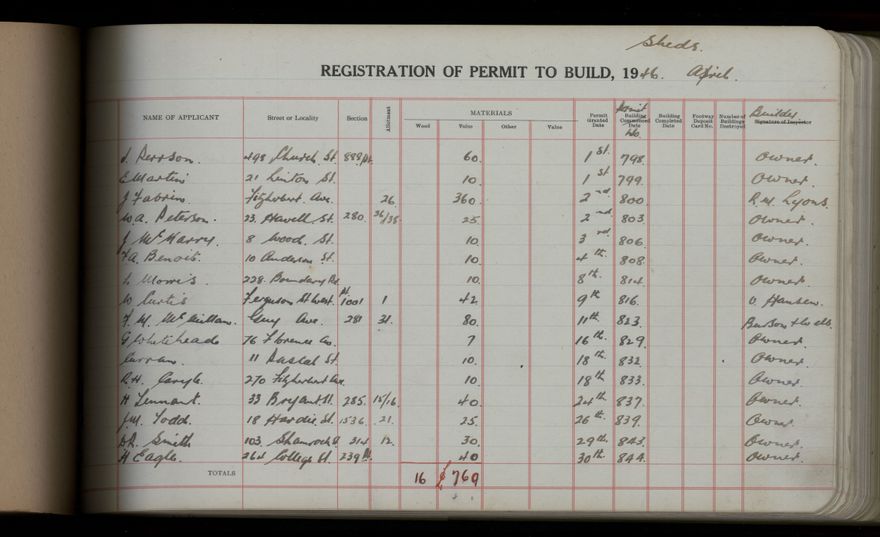 Sheds.
REGISTRATION OF PERMIT TO BUILD, 1946. April.
NAME OF APPLICANT Street or Locality Section Allotment MATERIALS Wood Value Other Value Permit Granted Date Permit Building Commenced Date No. Building Completed Date Footway Deposit Card No. Number of Buildings Destroyed Builder Signature of Inspector
498 Church St. 60. 1st. 798 Owner.
E Martin 21 Linton St. 10. 1st 799. Owner.
J Fabrin. Fitzherbert Ave. 26 360. 2nd 800 R.M. Lyons.
W.A. Peterson. 23 Havell St. 280. 36/38. 25. 2nd 803 Owner.
J McMarry. 8 Wood. St. 10. 3rd 806. Owner.
Benoit. 10 Anderson St. 10. 4th 808. Owner.
L Morris. 228 Boundary Rd. 10. 8th. 814. Owner.
W Curtis Ferguson St West. Pt. 1001 1 42 9th 816. Hansen.
McMillan. Guy Ave. 281 31. 80. 11th 823.
G Whitehead 76 Florence Av. 7 16th. 829. Owner.
Curran. 11 St. 10. 18th 832. Owner.
R.H. 270 Fitzherbert Ave. 10. 18th 833. Owner.
H Tennant. 33 Bryant St. 285. 15/16. 40. 24th 837. Owner.
J.M. Todd. 18 Hardie. St. 1536. 21. 25. 26th. 839. Owner.
Smith 103. Shamrock St 314 12. 30. 29th 843. Owner.
H Eagle. 264 College St. 239 Pt. 40 30th. 844. Owner.
TOTALS 16 £769